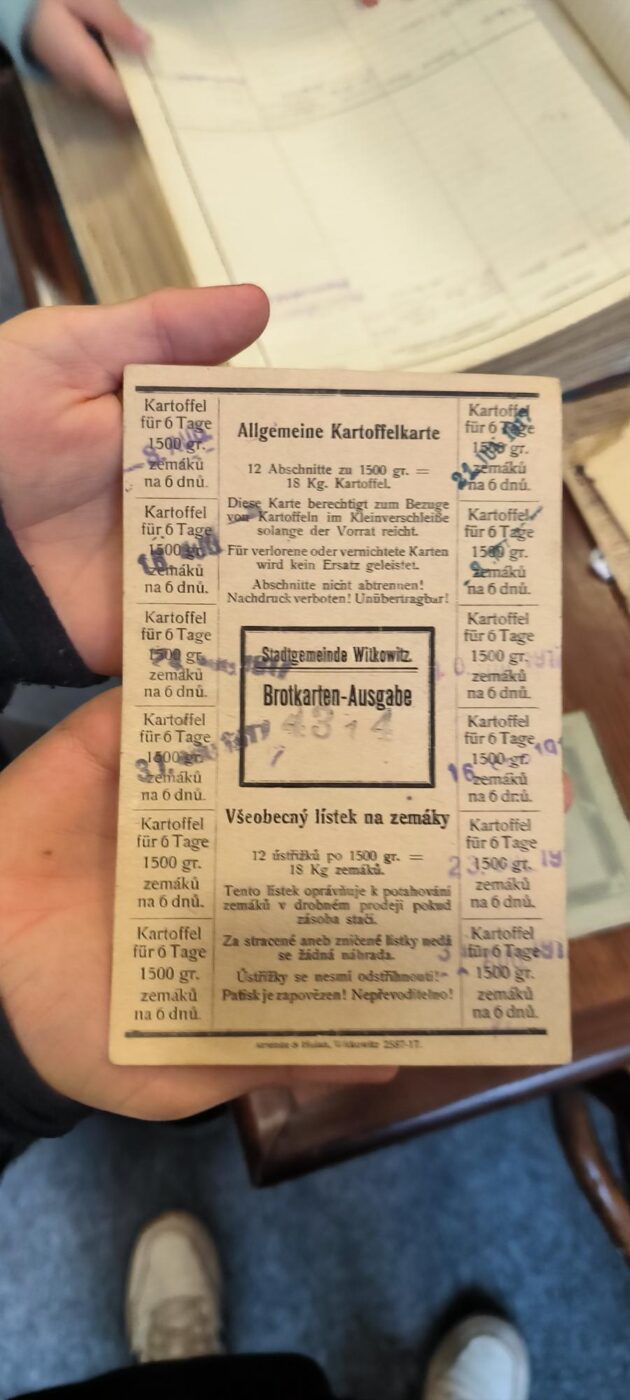 Kartoffel
für 6 Tage
1500 gr.
zemáků
na 6 dnů.
Kartoffel
für 6 Tage
1500 gr.
zemáků
na 6 dnů.
Kartoffel
für 6 Tage
1500 gr.
zemáků
na 6 dnů.
Kartoffel
für 6 Tage
1500 gr.
zemáků
na 6 dnů.
Kartoffel
für 6 Tage
1500 gr.
zemáků
na 6 dnů.
Kartoffel
für 6 Tage
1500 gr.
zemáků
na 6 dnů.
Allgemeine Kartoffelkarte
12 Abschnitte zu 1500 gr. =
18 Kg. Kartoffel.
Diese Karte berechtigt zum Bezuge
von Kartoffeln im Kleinverschleiße
solange der Vorrat reicht.
Für verlorene oder vernichtete Karten
wird kein Ersatz geleistet.
Abschnitte nicht abtrennen!
Nachdruck verboten! Unübertragbar!
Stadtgemeinde Witkowitz.
Brotkarten-Ausgabe
4314
Všeobecný lístek na zemáky
12 ústřižků po 1500 gr. =
18 Kg zemáků.
Tento lístek oprávňuje k potahování
zemáků v drobném prodeji pokud
zásoba stačí.
Za stracené aneb zničené lístky nedá
se žádná náhrada.
Ústřižky se nesmí odstřihnouti!
Patisk je zapovězen! Nepřevoditelno!
Witkowitz 2587-17.
Kartoffel
für 6 Tage
1500 gr.
zemáků
na 6 dnů.
Kartoffel
für 6 Tage
1500 gr.
zemáků
na 6 dnů.
Kartoffel
für 6 Tage
1500 gr.
zemáků
na 6 dnů.
Kartoffel
für 6 Tage
1500 gr.
zemáků
na 6 dnů.
Kartoffel
für 6 Tage
1500 gr.
zemáků
na 6 dnů.
Kartoffel
für 6 Tage
1500 gr.
zemáků
na 6 dnů.